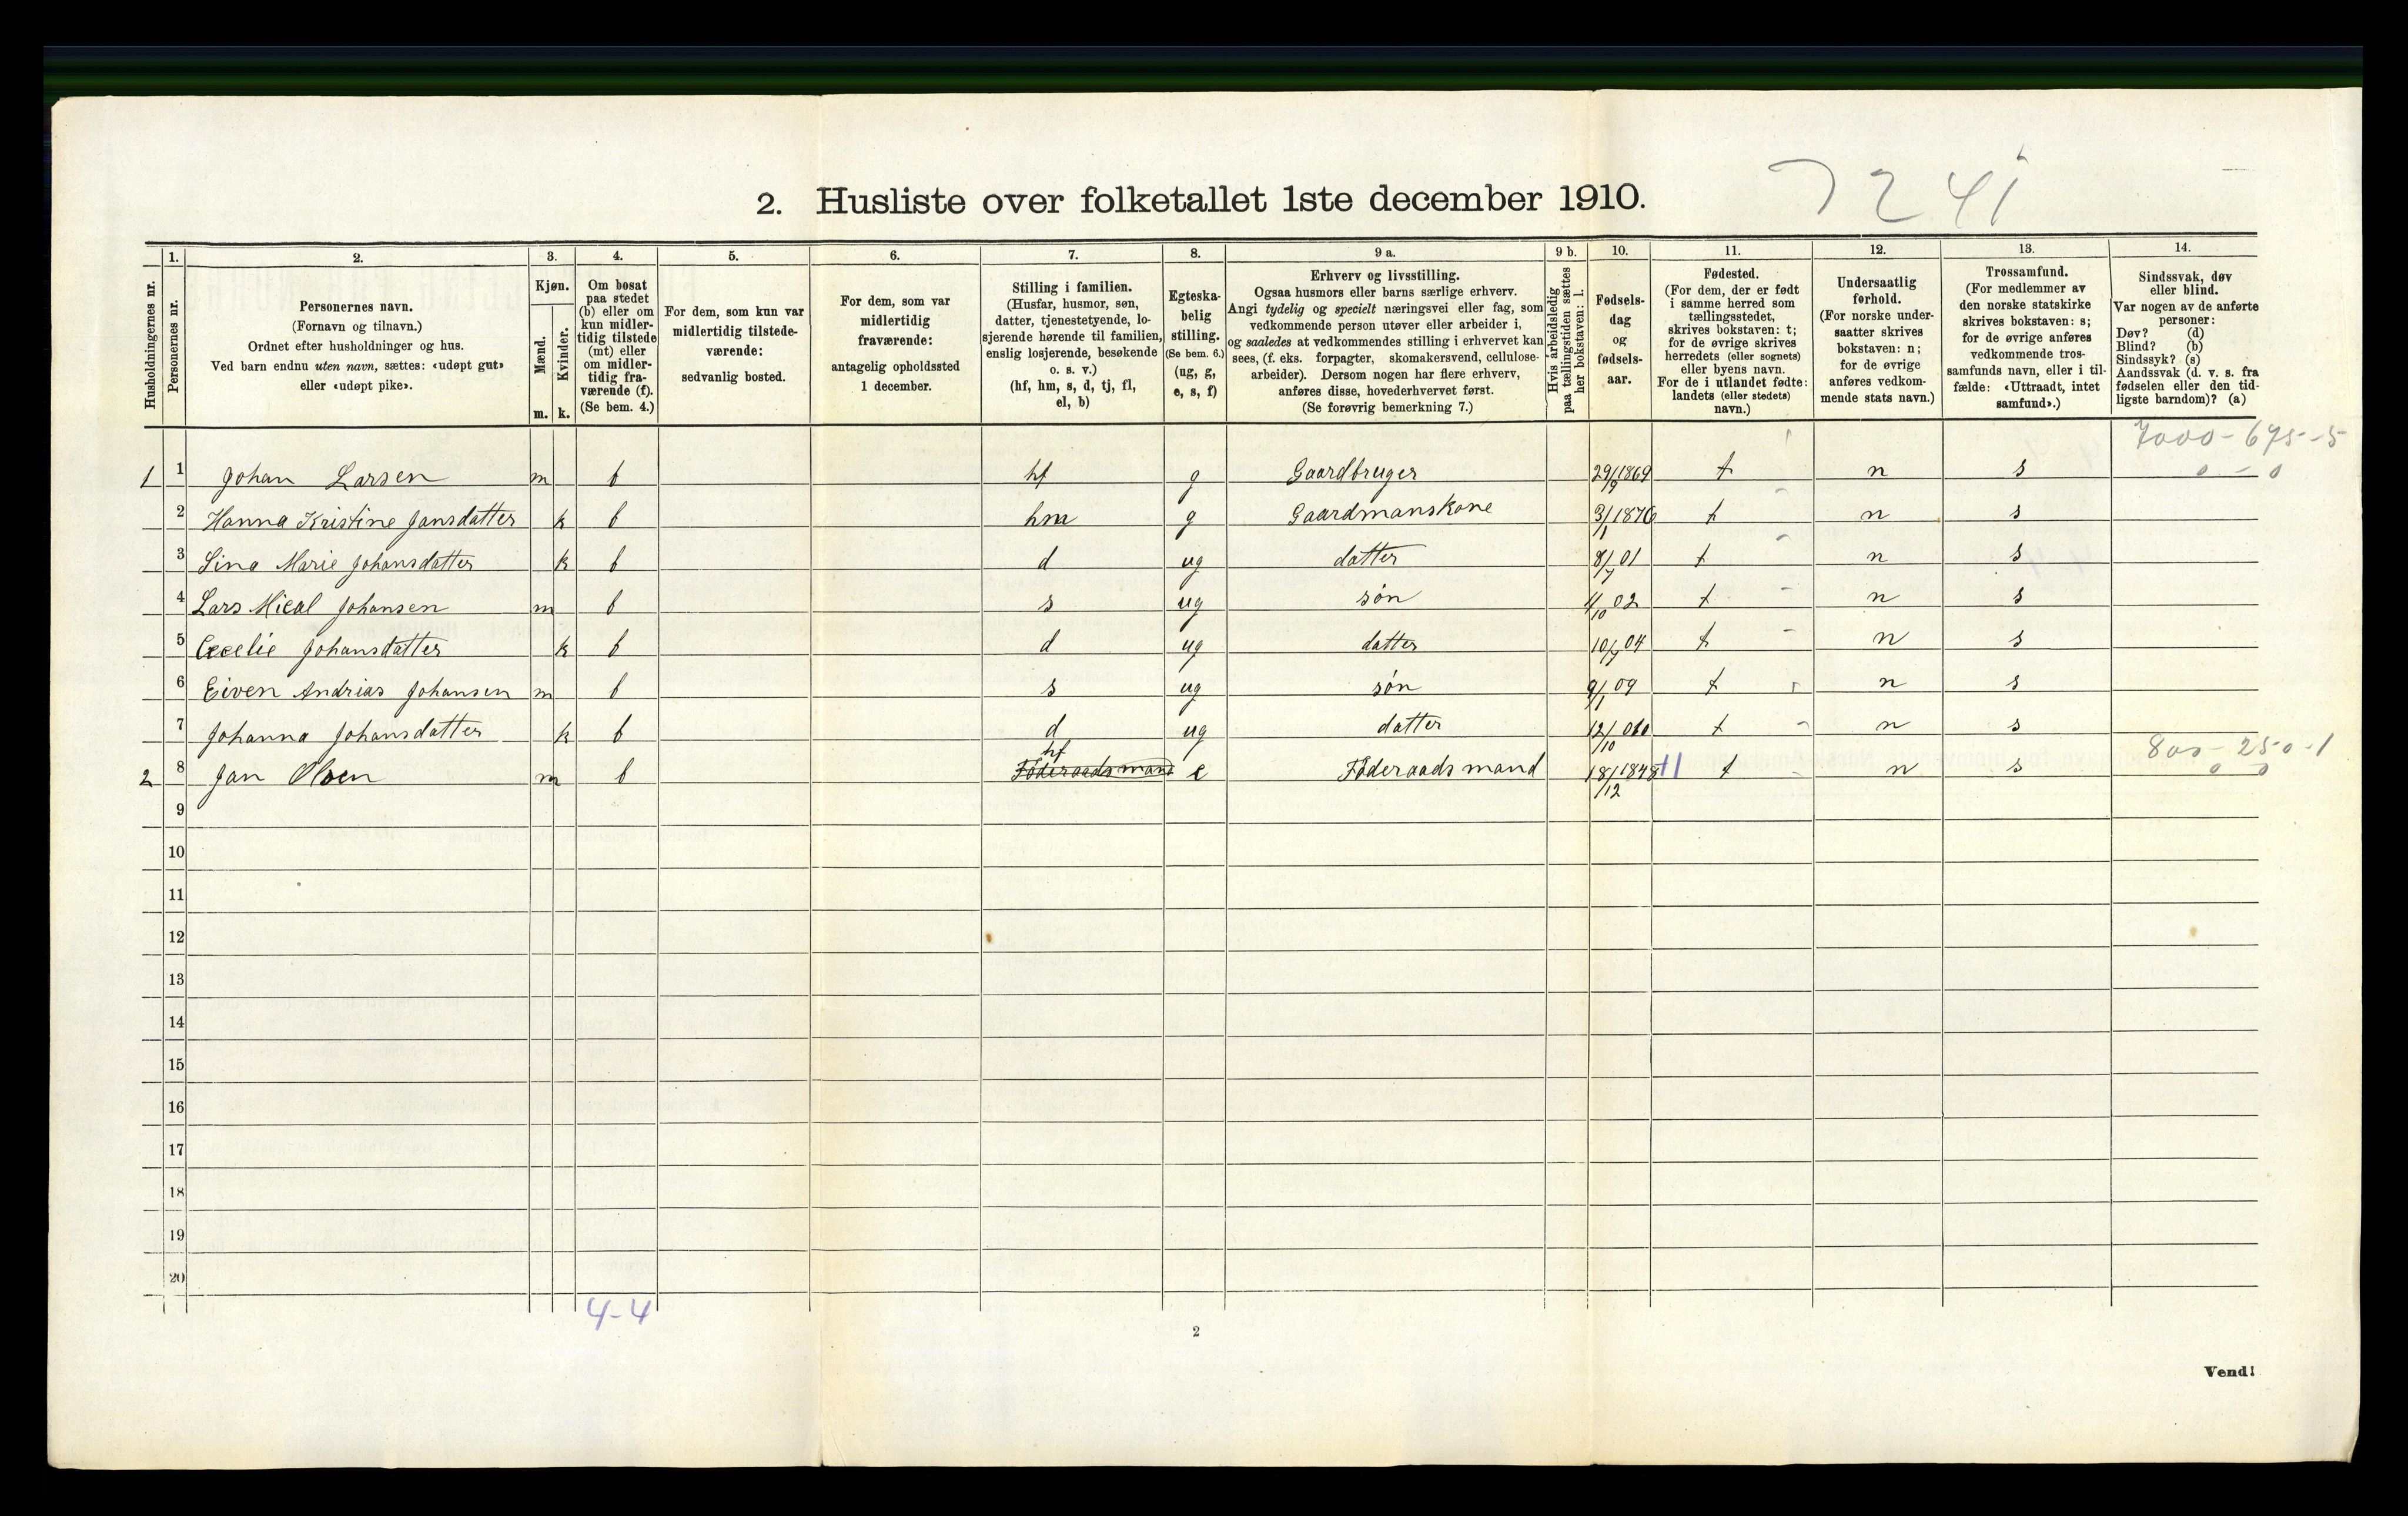 7241
2. Husliste over folketallet 1ste december 1910.
Husholdningernes nr.
1. Personernes nr.
2. Personernes navn. (Fornavn og tilnavn.) Ordnet efter husholdninger og hus. Ved barn endnu uten navn, sættes: «udøpt gut» eller «udøpt pike».
3. Kjøn. Mænd. m. Kvinder. k.
4. Om bosat paa stedet (b) eller om kun midler-tidig tilstede (mt) eller om midler-tidig fra-værende (f). (Se bem. 4.)
5. For dem, som kun var midlertidig tilstede-værende: sedvanlig bosted.
6. For dem, som var midlertidig fraværende: antagelig opholdssted 1 december.
7. Stilling i familien. (Husfar, husmor, søn, datter, tjenestetyende, lo-sjerende hørende til familien, enslig losjerende, besøkende o. s. v.) (hf, hm, s, d, tj, fl, el, b)
8. Egteska-belig stilling. (Se bem. 6.) (ug, g, e, s, f)
9 a. Erhverv og livsstilling. Ogsaa husmors eller barns særlige erhverv. Angi tydelig og specielt næringsvei eller fag, som vedkommende person utøver eller arbeider i, og saaledes at vedkommendes stilling i erhvervet kan sees, (f. eks. forpagter, skomakersvend, cellulose-arbeider). Dersom nogen har flere erhverv, anføres disse, hovederhvervet først. (Se forøvrig bemerkning 7.)
9 b. Hvis arbeidsledig paa tællingstiden sættes her bokstaven: l.
10. Fødsels-dag og fødsels-aar.
11. Fødested. (For dem, der er født i samme herred som tællingsstedet, skrives bokstaven: t; for de øvrige skrives herredets (eller sognets) eller byens navn. For de i utlandet fødte: landets (eller stedets) navn.)
12. Undersaatlig forhold. (For norske under-saatter skrives bokstaven: n; for de øvrige anføres vedkom-mende stats navn.)
13. Trossamfund. (For medlemmer av den norske statskirke skrives bokstaven: s; for de øvrige anføres vedkommende tros-samfunds navn, eller i til-fælde: «Uttraadt, intet samfund».)
14. Sindssvak, døv eller blind. Var nogen av de anførte personer: Døv? (d) Blind? (b) Sindssyk? (s) Aandssvak (d. v. s. fra fødselen eller den tid-ligste barndom)? (a)
7000-675-5
1 1 Johan Larsen m b hf g Gaardbruger 29/9 1869 t n s 0-0
2 Hanna Kristine Jansdatter k b hm g Gaardmanskone 3/1 1876 t n s
3 Sina Marie Johansdatter k b d ug datter 8/7 01 t n s
4 Lars Mical Johansen m b s ug søn 1/10 02 t n s
5 Cecelie Johansdatter k b d ug datter 10/7 04 t n s
6 Eiven Andrias Johansen m b s ug søn 9/1 09 t n s
7 Johanna Johansdatter k b d ug datter 12/10 010 t n s
800-250-1
2 8 Jan Olsen m b hf Föderaadsmand e Föderaadsmand 18/12 1848 +1 t n s 0 0
9
10
11
12
13
14
15
16
17
18
19
20
4-4
2
Vend!